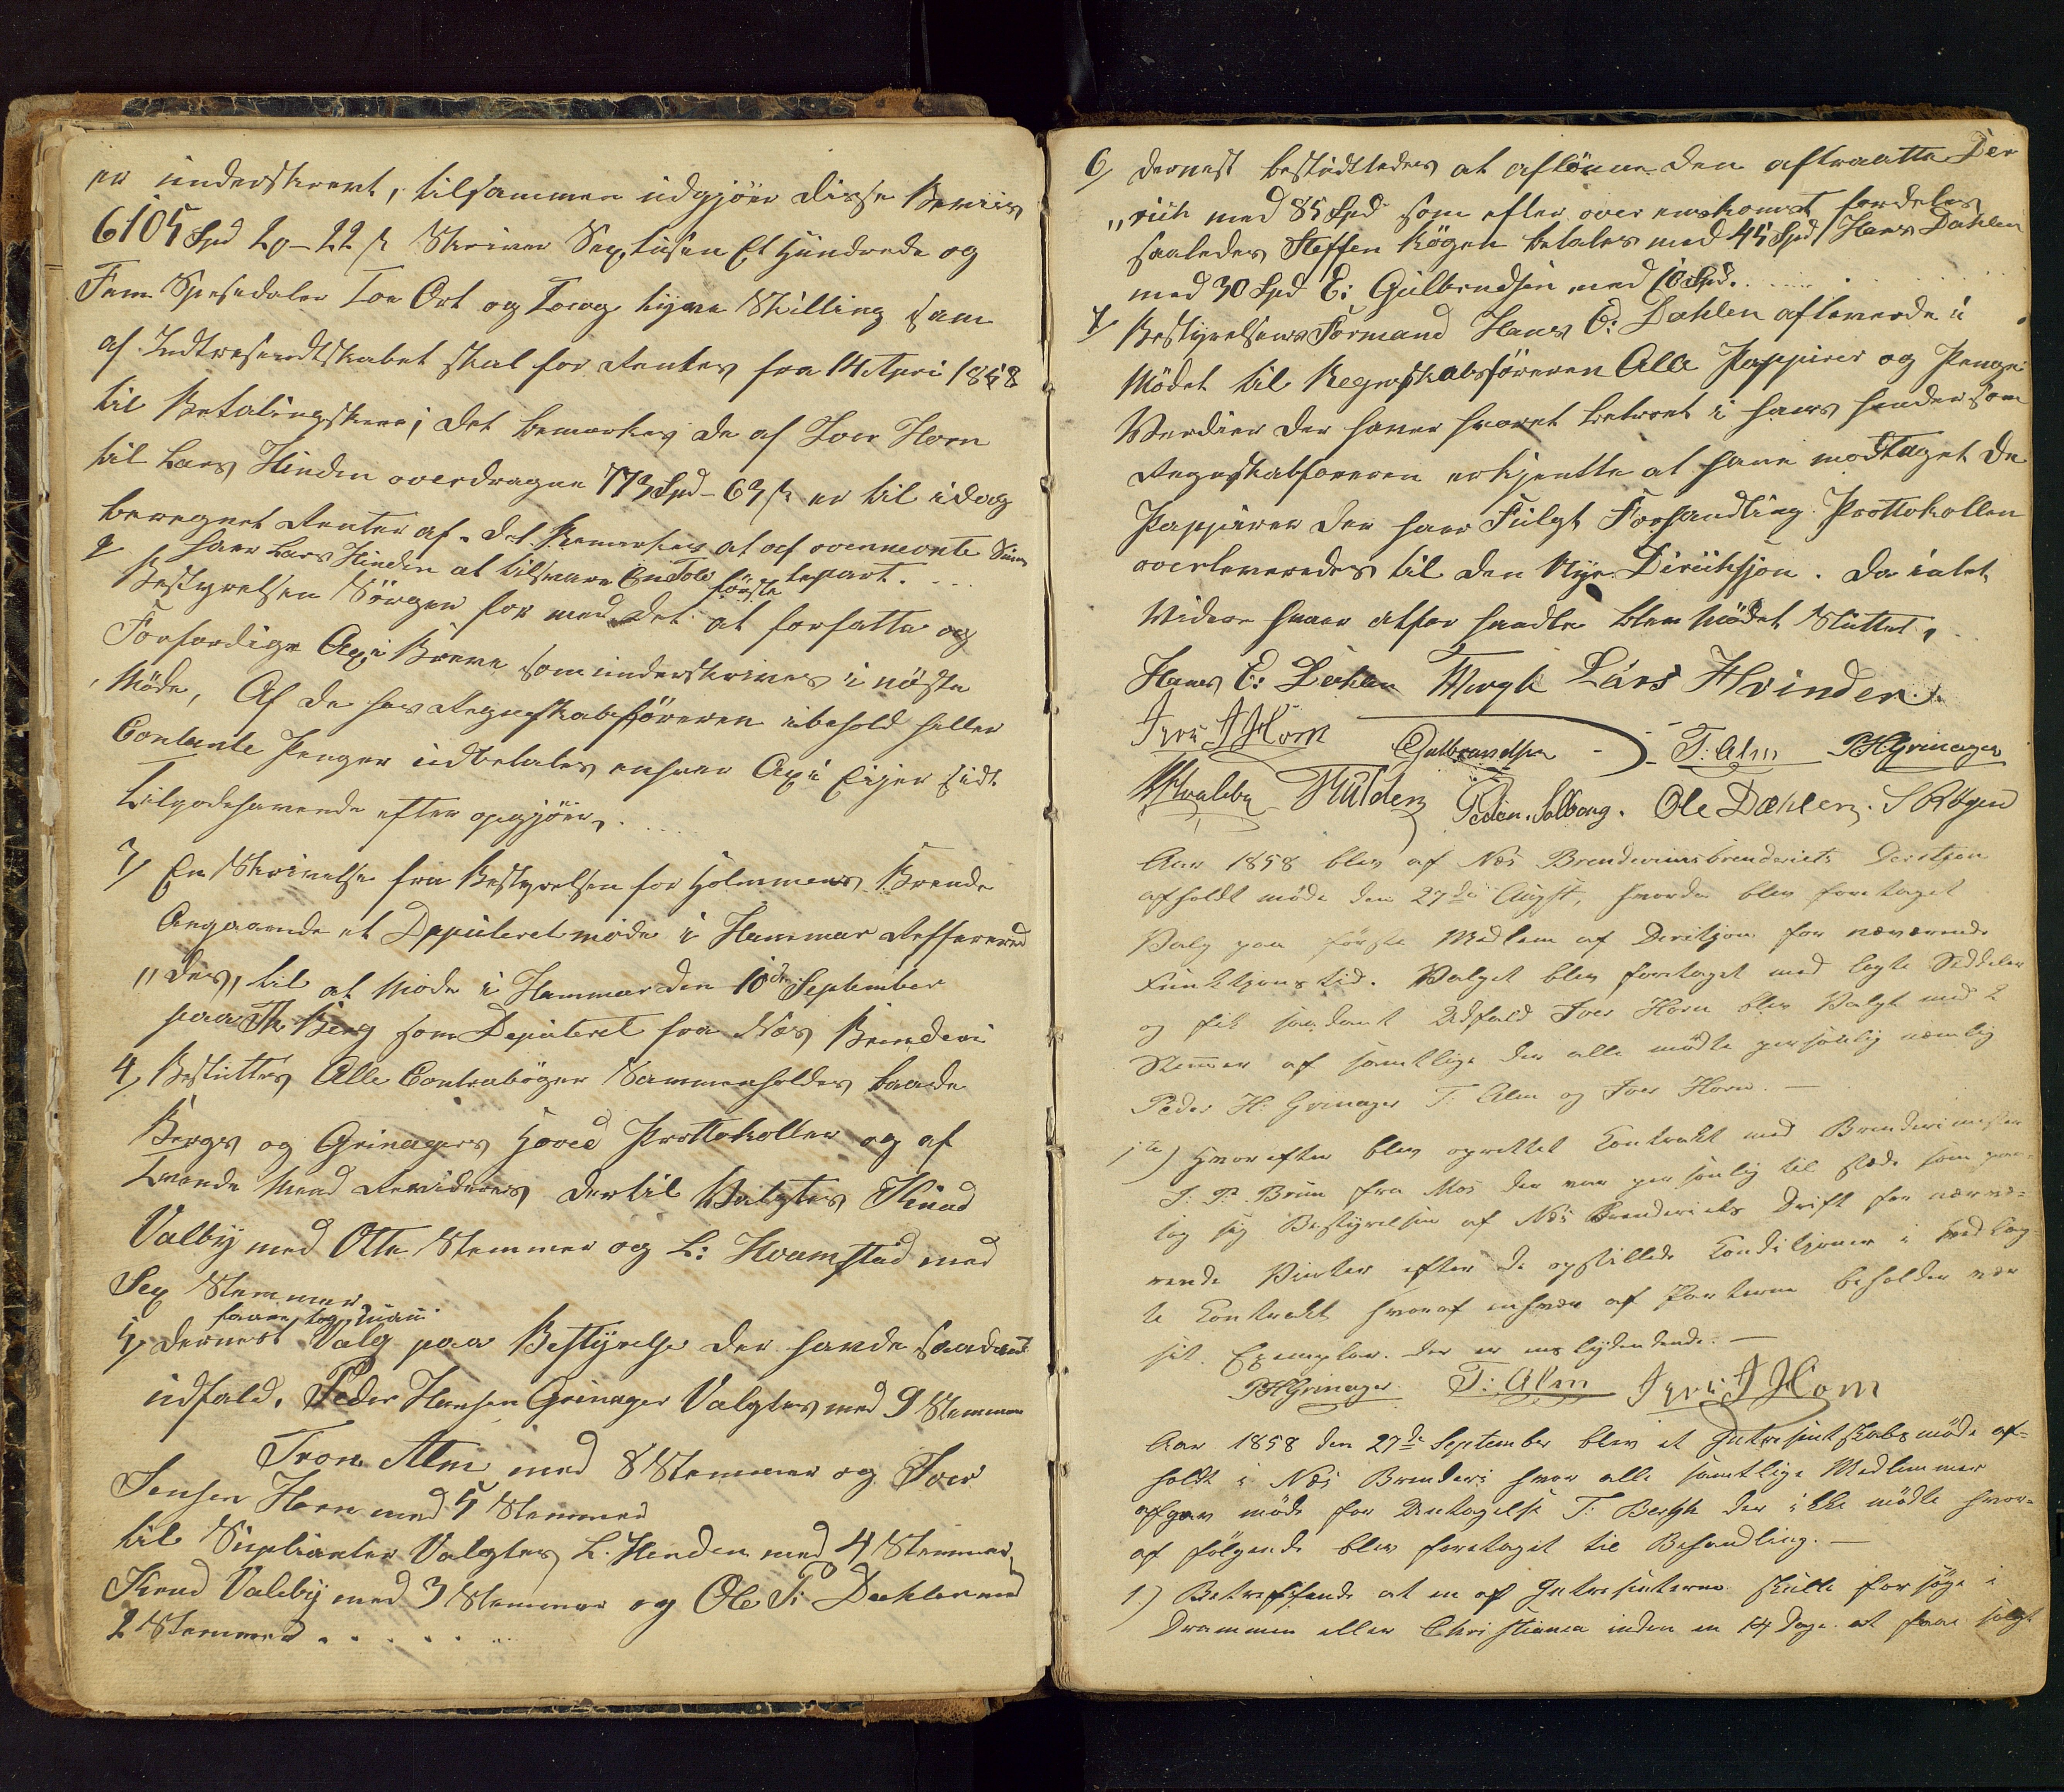 er underskrevt, tilsammen udgjör disse Beviis
6105 Spd 2 o - 22 s Skriver Sextusen Et Hundrede og
Fem Spesidaler Toe Ort og Toeog tyve Skilling som
af Indtresendtskabet skal for Rentes fra 14 Apri 1858
til Betalingskeer; det bemerkes de af Iver Horn
til Lars Hinden overdragne 773 Spd - 63 s er til idag
beregnet Renter af. Det Bemerkes at af ovenmeonte Sum
haver Lars Hinden at tilsvare En Tolv tepart. . . .
2 Bestyrelsen Sörger for med det förste at forfatte og
Forferdige Axi Breve som underskrives i nöste
Möde, Af de hos Regnskabsföreren ibehold heller
Contante Penger udbetales enhver Axi Eijer sidt
tilgodehavende efter opgjör, . . . .
3/ En Skrivelse fra Bestyrelsen for Holmmens Brende
Angaaende et Depüteret möde i Hammar Refferered
„des, til at Möde i Hammar den 10de September
paa Th Berg som Depüteret fra Nes Brenderi
4/ Besluttes Alle Contraböger Sammenholdes baade
Bergs og Grinagers Hoved Prottokoller og af
tvende Mend Revideres dertil Valgtes Knud
Valby med Otte Stemmer og L: Hvamstad med
Sex Stemmer
5/ dernest foretog man Valg paa Bestyrelse der havde saadant
udfald. Peder Hansen Grinager Valgtes med 9 Stemmer
Tron Alm med 8 Stemmer og Iver
Jensen Horn med 5 Stemmer
til Suplianter Valgtes L. Henden med 4 Stemmer
Knud Valeby med 3 Stemmer og Ole P: Dæhlen med
2 Stemmer . . . . . .
6/ dernest besludttedes at aflönne den aftraatte Der
„rich med 85 Spd som efter over enskomst fordeles
saaledes Steffen Rögen betales med 45 Spd Hans Dahlen
med 30 Spd E: Gulbrndsen med 10 Spd. . . . .
7/ Bestyrelsens Formand Hans E: Dahlen afleverde i
Mödet til Regnskabsföreren Alle Pappirer og Penge
Verdier der haver hvoret betroet i hans hender som
Regnskabsföreren erkjentte at have modtaget de
Pappirer der haver Fulgt Forhandling Prottokollen
overleveredes til den Nye Direiksjon. Da intet
Videre hvaer atfor handle blev Mödet Sluttet,
Hans E: Dahlen TBergh Lars Hvinden.
Iver J Horn Gulbrandsen - T: Alm PHGrinager
KHvaleby Hulden Peder. Solberg. Ole Dæhlen. S Rögen
Aar 1858 blev af Næs Brendevinsbrenderiets Deriktjon
afholdt möde den 27de Augst, hvorder blev foretaget
Valg paa förste Medlem af Deriktjon for næværende
Funktjonstid. Valget blev foretaget med lagte Seddeler
og fik saadant Udfald Iver Horn blev Valgt med 2
Stemmer af samtlige der alle mödte personlig nemlig
Peder H: Grinager T: Alm og Iver Horn. —
1te) Hvorefter blev oprettet Kontrakt med Brenderimester
I: P: Brun fra Mos der var personlig til stede som paa-
tog sig Bestyrelsen af Næs Brenderiets Drift for nærvæ-
rende Vinter efter de opstillede Konditjoner i Vedlag
te Kontrakt hvoraf enhver af Parterne beholder vær
sit Exemplar. der er enslydendede. —
PHGrinager T: Alm Iver J Horn
Aar 1858 den 27de September blev et Intresentskabsmöde af-
holdt i Næs Brenderi hvor alle samtlige Medlemmer
afgav möde for Undtagelse T: Bergh der ikke mödte hvor-
af fölgende blev foretaget til Behandling. —
1.) Betreffende at en af Intresenterne skulle forsöge i
Drammen eller Christiania inden en 14 dage at faae solgt